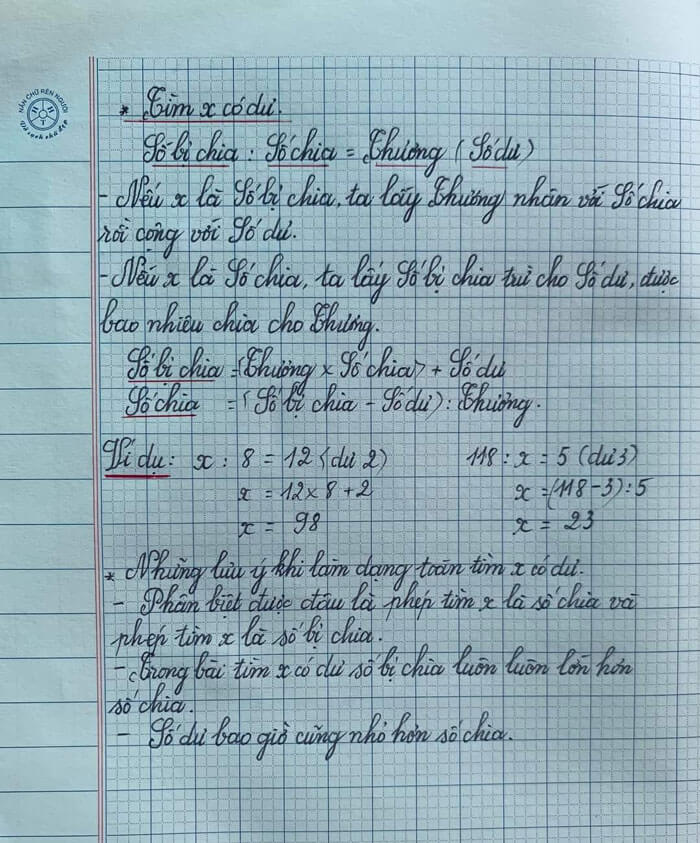 NẮN CHỮ RÈN NGƯỜI
Vở sạch chữ đẹp
* Tìm x có dư.
Số bị chia : Số chia = Thương (Số dư)
- Nếu x là Số bị chia, ta lấy Thương nhân với Số chia
rồi cộng với Số dư.
- Nếu x là Số chia, ta lấy Số bị chia trừ cho Số dư, được
bao nhiêu chia cho Thương.
Số bị chia = (Thương x Số chia) + Số dư
Số chia = (Số bị chia - Số dư) : Thương.
Ví dụ: x : 8 = 12 (dư 2) 118 : x = 5 (dư 3)
x = 12 x 8 + 2 x = (118 - 3) : 5
x = 98 x = 23
* Những lưu ý khi làm dạng toán tìm x có dư.
- Phân biệt được đâu là phép tìm x là số chia và
phép tìm x là số bị chia.
- Trong bài tìm x có dư số bị chia luôn luôn lớn hơn
số chia.
- Số dư bao giờ cũng nhỏ hơn số chia.